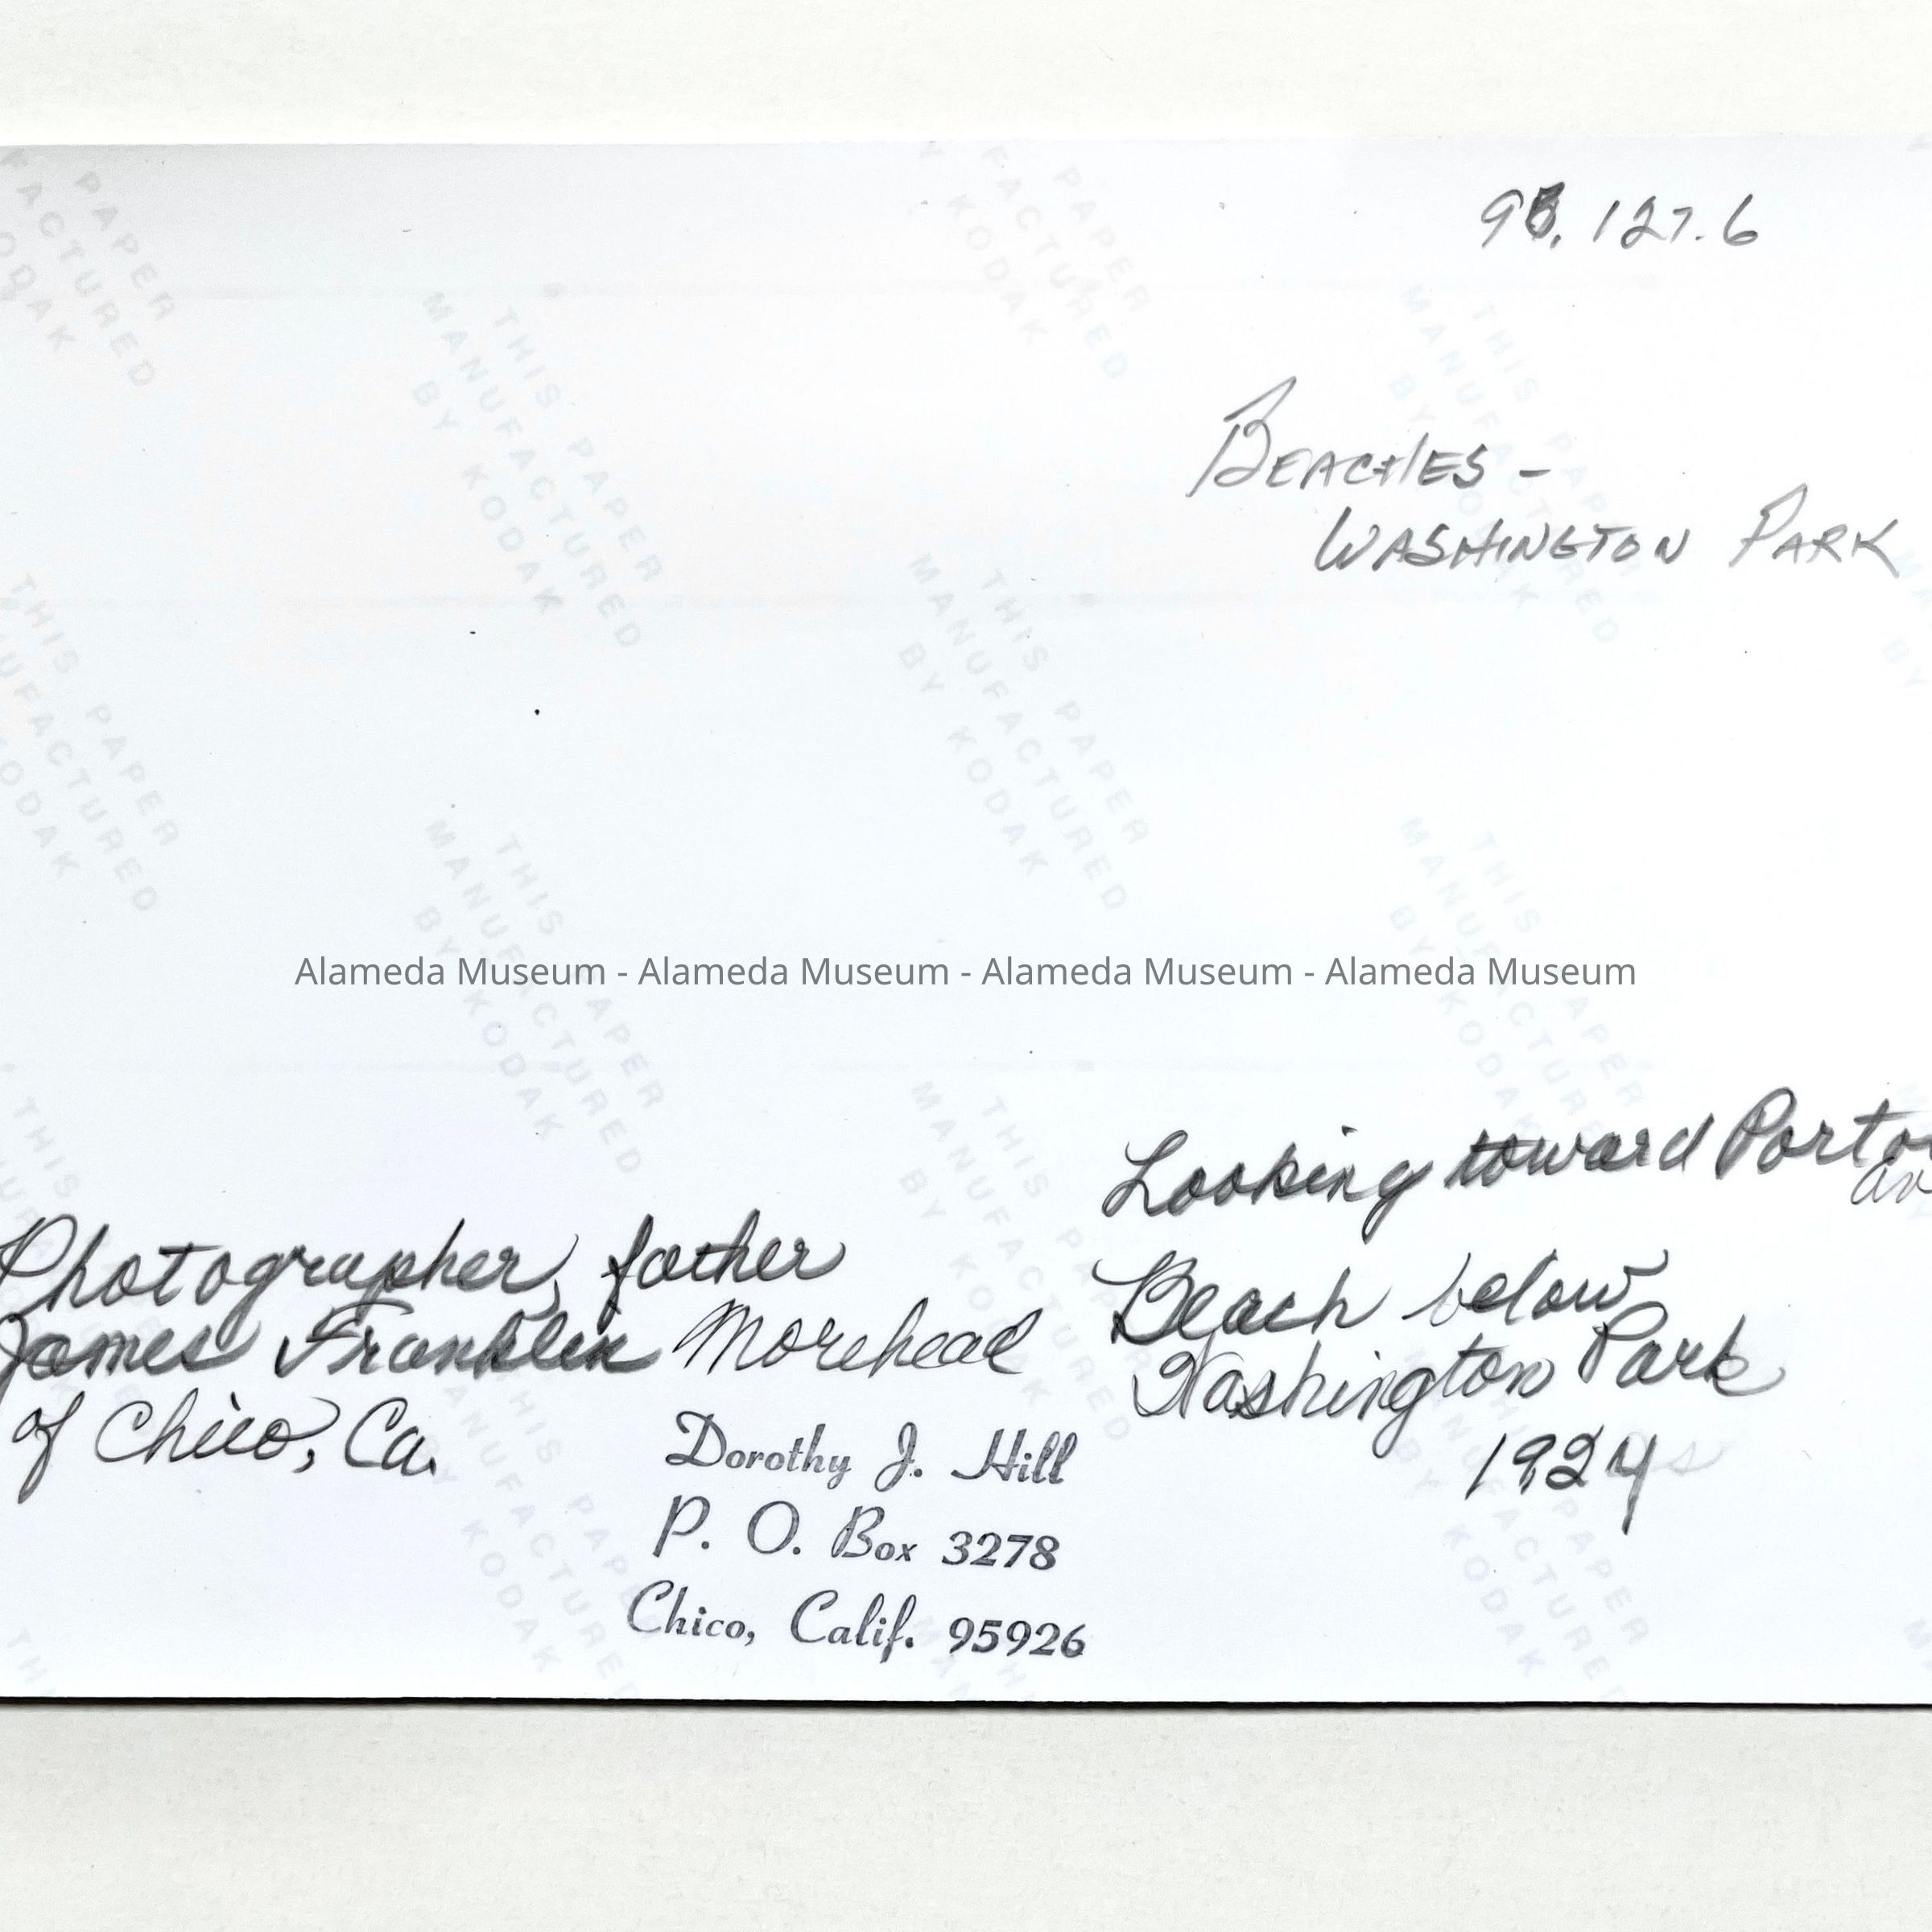 127.6
BEACHES -
WASHINGTON PARK
Alameda Museum - Alameda Museum - Alameda Museum - Alameda Museum
Looking toward
Beach below
Washington Park
1924
Photographer, father
James Franklin Morehead
of Chico, Ca.
Dorothy J. Hill
P. O. Box 3278
Chico, Calif. 95926
THIS PAPER
MANUFACTURED
BY KODAK